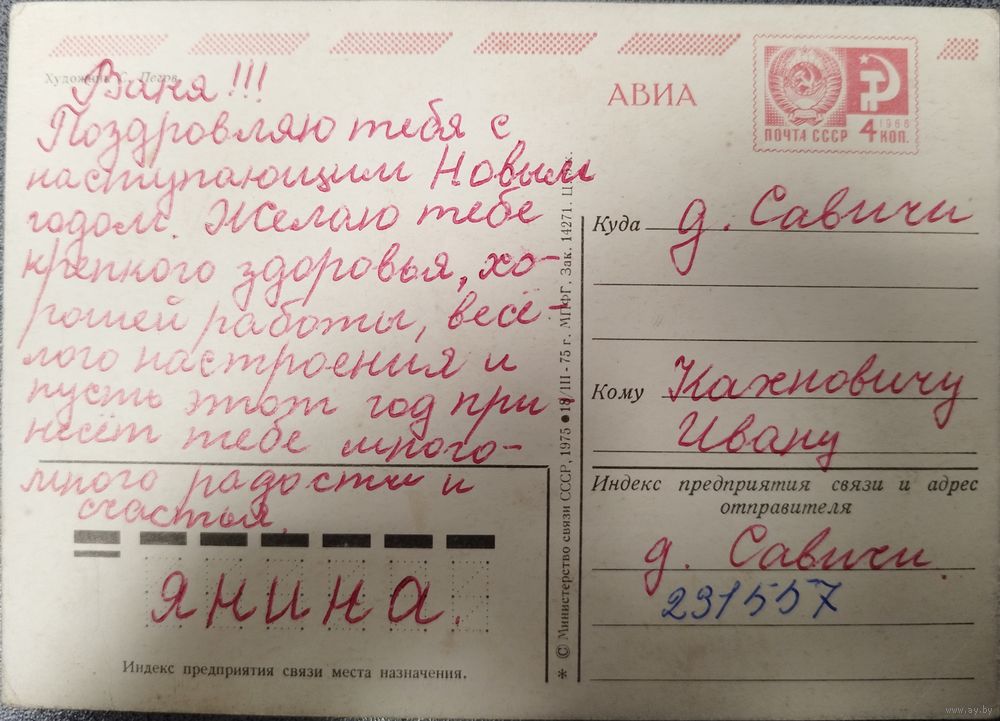 Художник С. Петров
Ваня!!!
Поздровляю тебя с
наступающим Новым
годом. Желаю тебе
крепкого здоровья, хо-
рошей работы, весё-
лого настроения и
пусть этот год при
несёт тебе много-
много радости и
счастья.
янина.
Индекс предприятия связи места назначения.
* © Министерство связи СССР, 1975 ● 18/III-75 г. МПФГ. Зак. 14271.
АВИА
ПОЧТА СССР 4 КОП.
1966
Куда д. Савичи
Кому Кахновичу
Ивану
Индекс предприятия связи и адрес
отправителя
д. Савичи.
231557
www.ay.by